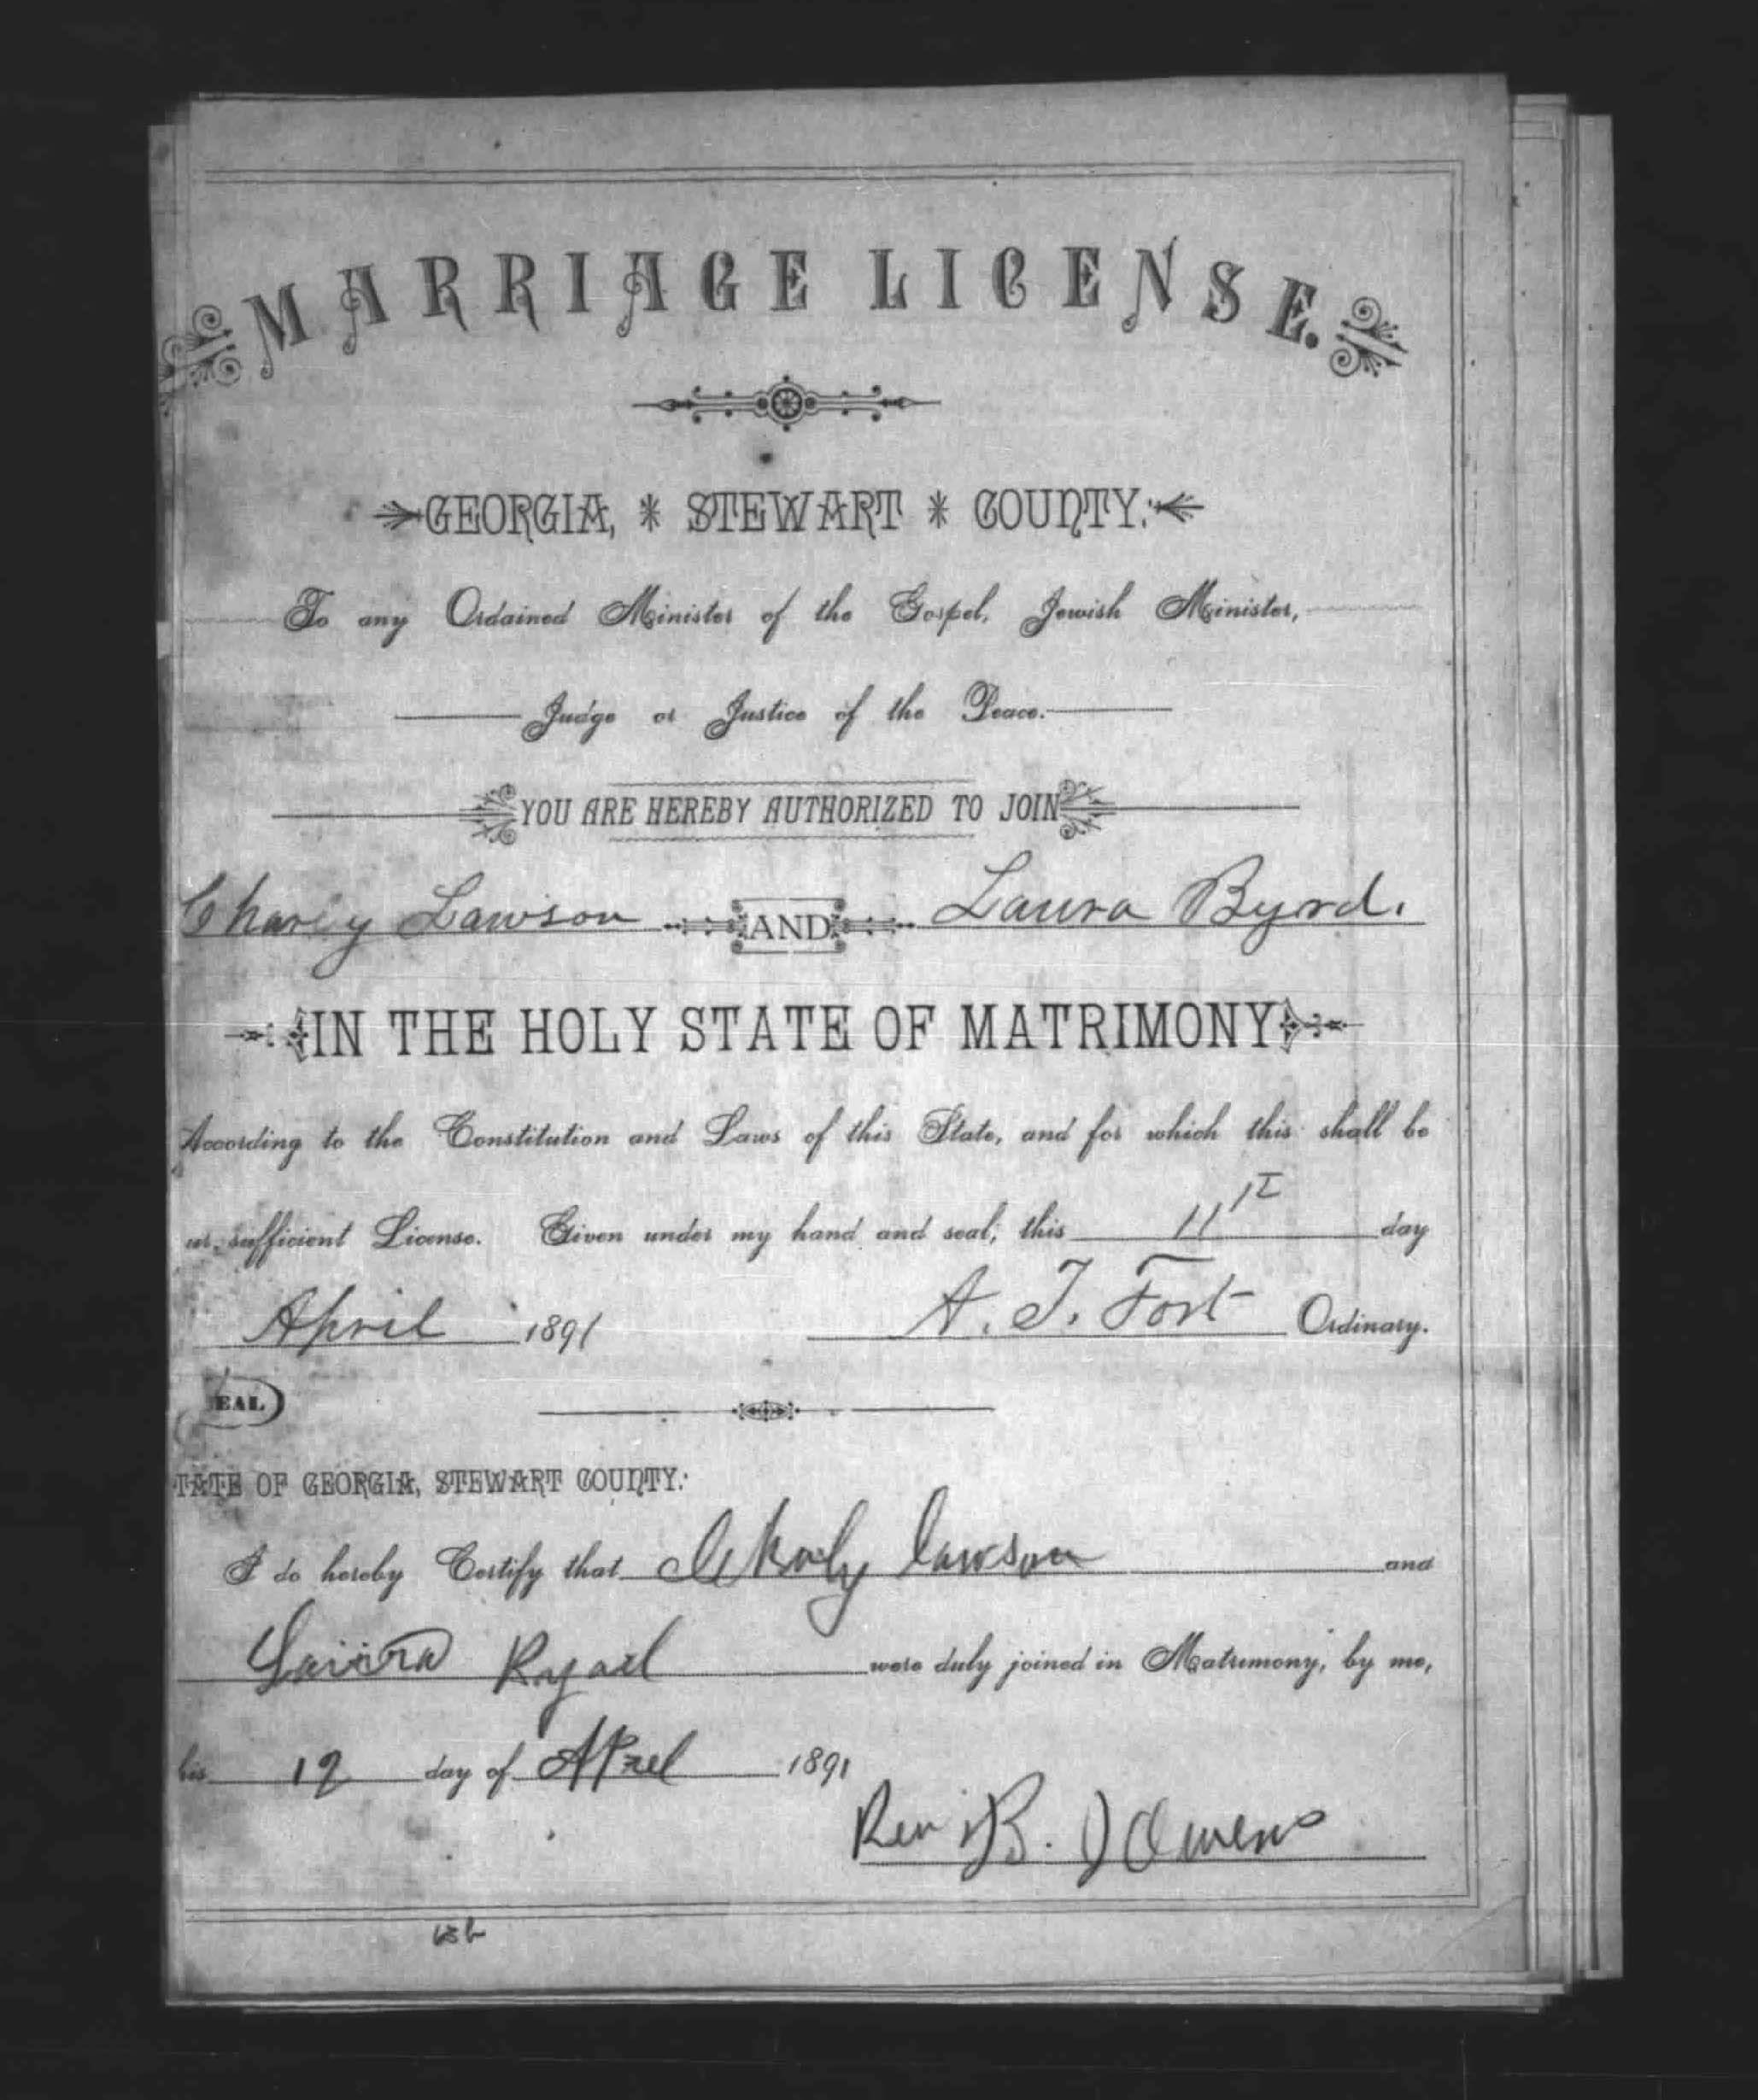 MARRIAGE LICENSE.
GEORGIA, * STEWART * COUNTY:
To any Ordained Minister of the Gospel, Jewish Minister,
Judge or Justice of the Peace.
YOU ARE HEREBY AUTHORIZED TO JOIN
Charley Lawson AND Laura Byrd.
IN THE HOLY STATE OF MATRIMONY
According to the Constitution and Laws of this State, and for which this shall be
sufficient License. Given under my hand and seal, this 11 day
April 1891 A. T. Fort Ordinary.
EAL
TATE OF GEORGIA, STEWART COUNTY:
I do hereby Certify that Lawson and
were duly joined in Matrimony, by me,
his 12 day of 1891
Rev B. J Owens